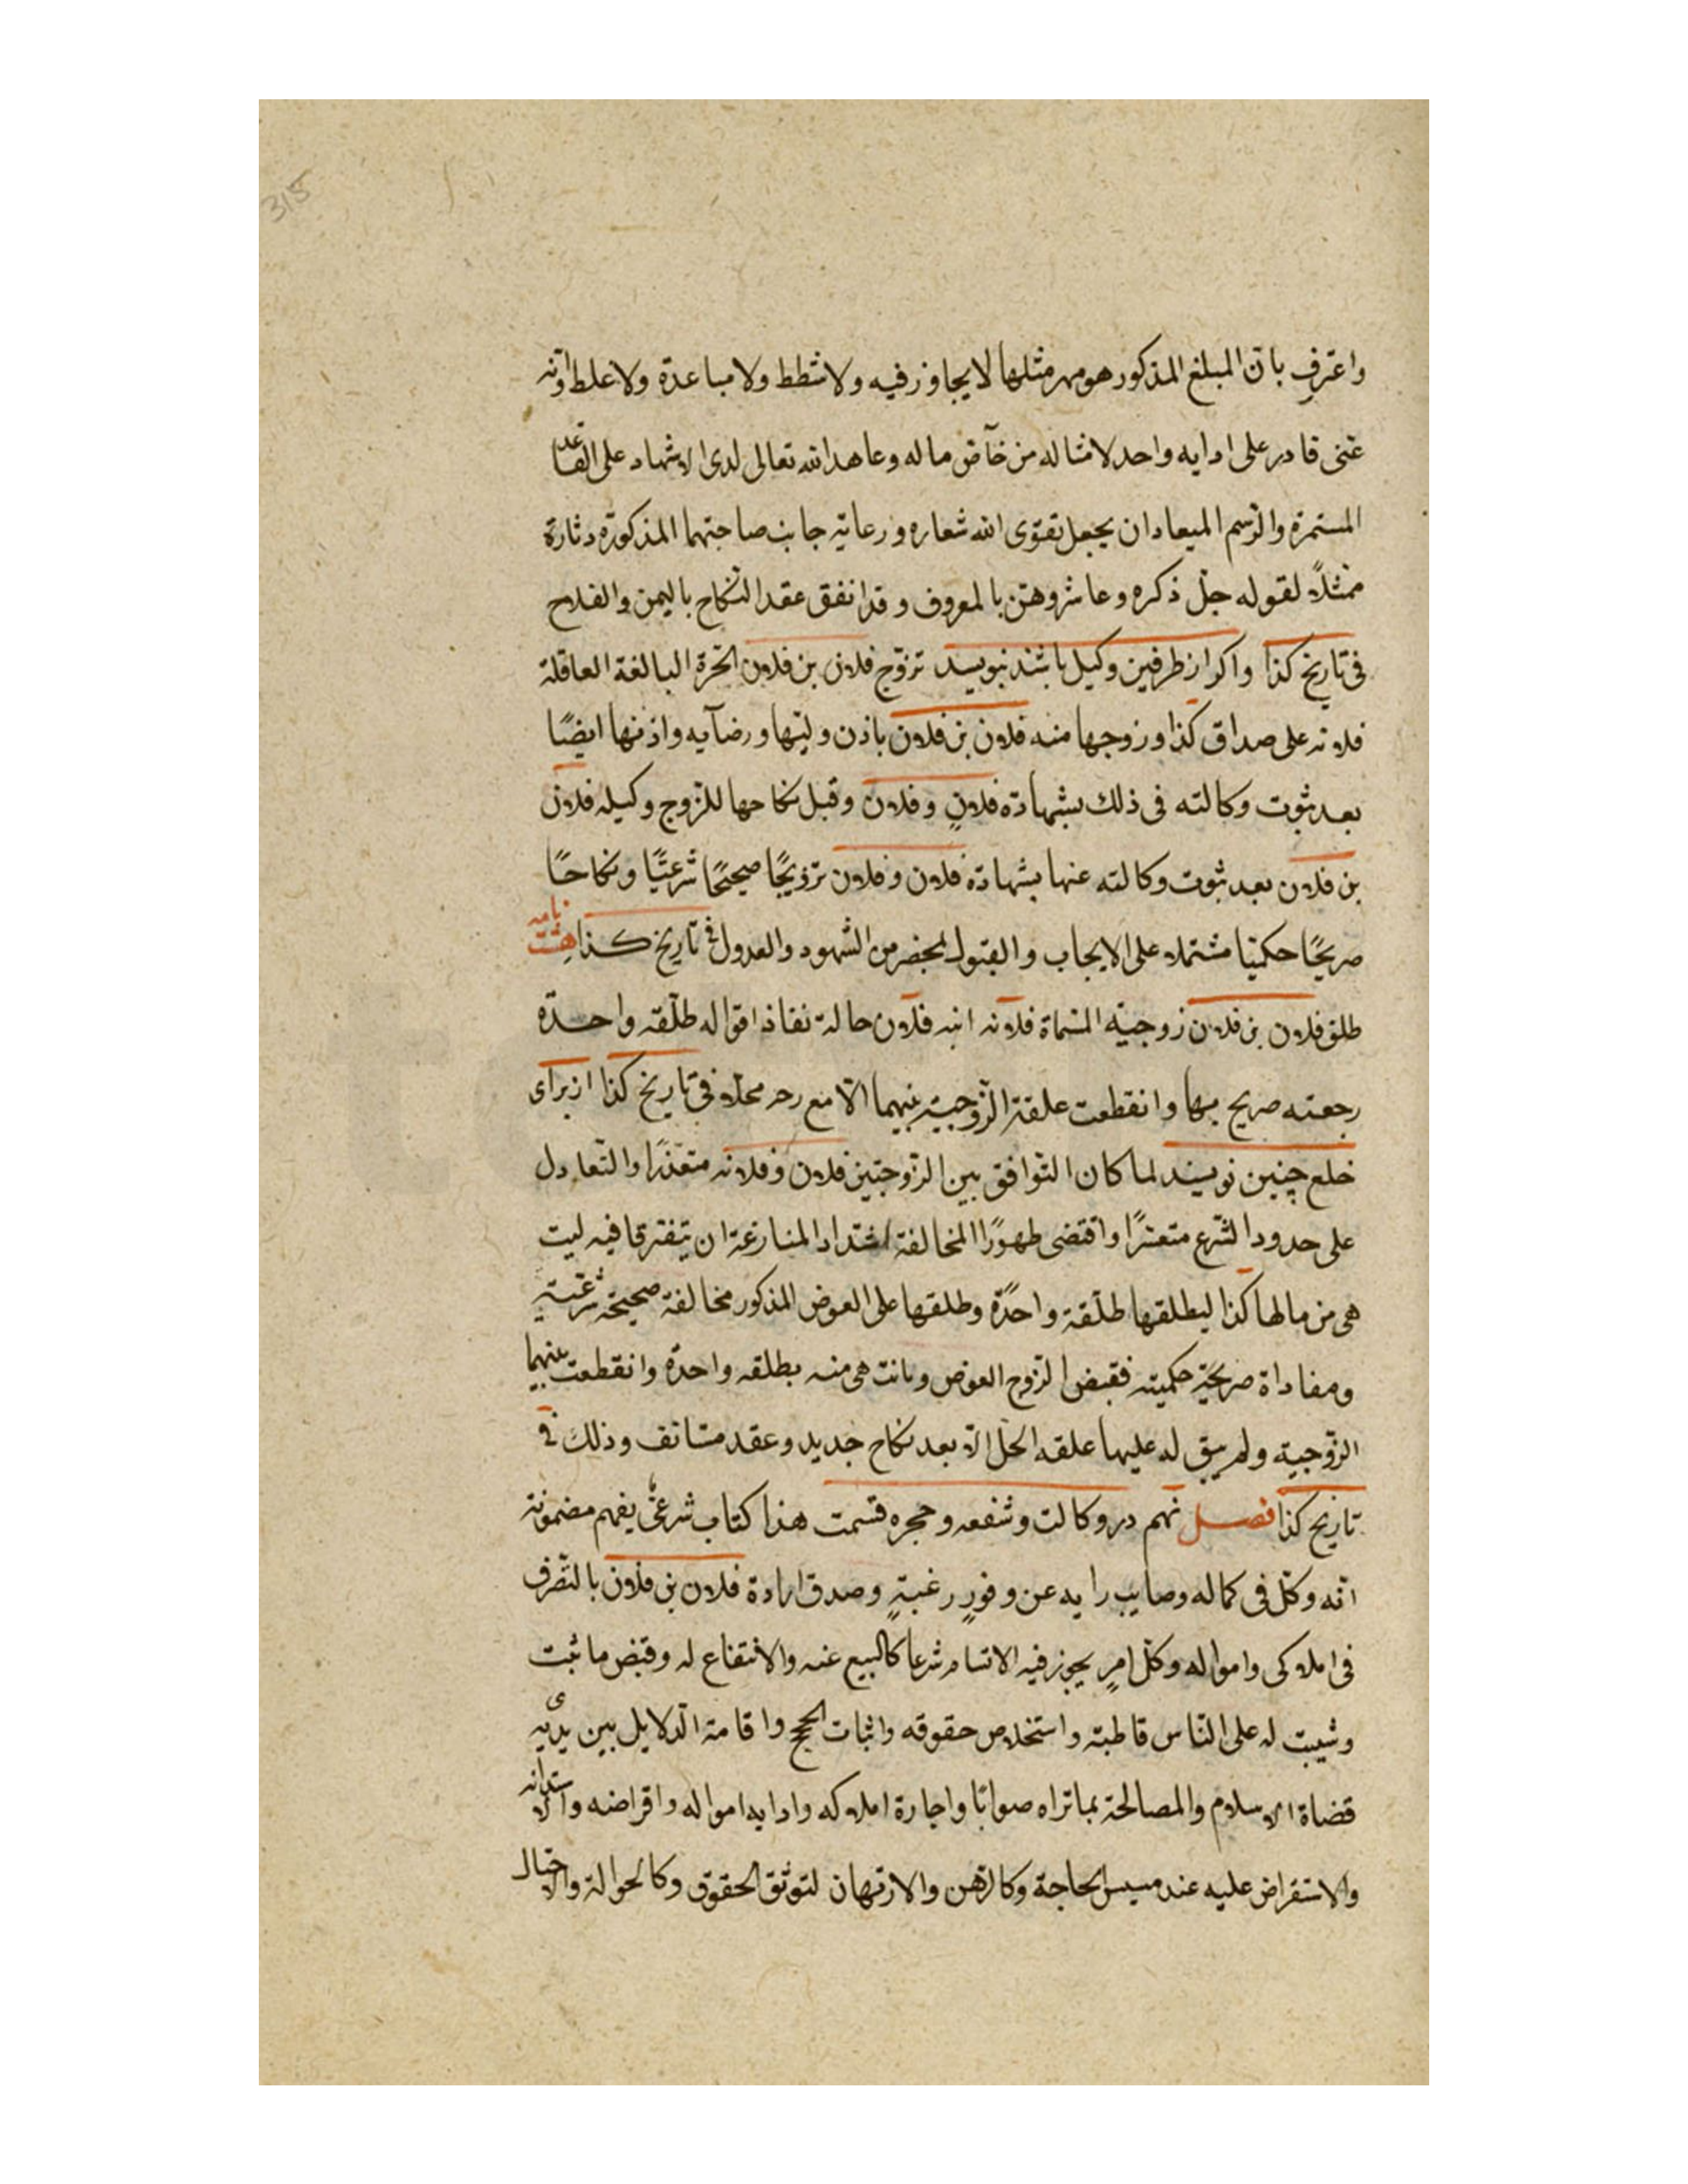 315
واعترف بان المبلغ المذكور هو مهر مثلها لا يجاوز فيه ولا شطط ولا مباعدة ولا غلط وانه
غنى قادر على ادايه واحد لامثاله من خآص ماله وعاهد الله تعالى لدى الاشهاد على القاعدة
المستمرة والرسم الميعاد ان يجعل تقوى الله شعاره ورعاية جانب صاحبتهما المذكورة دثارة
ممثلاً لقوله جل ذكره وعاشروهن بالمعروف وقد انفق عقد النكاح باليمن والفلاح
فى تاريخ كذا واكر از طرفين وكيل باشند بنويسد تزوج فلان بن فلان الحرة البالغة العاقلة
فلانه على صداق كذا وزوجها منه فلان بن فلان باذن وليها ورضآيه واذنها ايضًا
بعد ثبوت وكالته فى ذلك بشهادة فلانٍ وفلان وقبل نكاحها للزوج وكيله فلان
بن فلان بعد ثبوت وكالته عنها بشهادة فلان وفلان تزويجًا صحيحًا شرعيًا ونكاحًا
صريحًا حكميا مشتملا على الايجاب والقبول بمحضر من الشهود والعدول فى تاريخ كذا نامه
طلق فلان بن فلان زوجيته المسماة فلانه ابنه فلان حالة نفاذ اقواله طلقه واحدة
رجعته صريح بها وانقطعت علقة الزوجية بينهما الا مع رحه محلا فى تاريخ كذا از براى
خلع چنين نويسند لما كان التوافق بين الزوجتين فلان وفلانه متعذرًا والتعادل
على حدود الشرع متعسرًا واقتضى طهورًا المخالفة اشتداد المنازعة ان يتفترقا فيه ليت
هى من مالها كذا ليطلقها طلقة واحدًة وطلقها على العوض المذكور مخالفة صحيحة شرعية
ومفاداة صريحية حكميته فقبض الزوج العوض وبانت هى منه بطلقه واحدة وانقطعت بينهما
الزوجية ولم يبق له عليها علقه الحل الا بعد نكاح جديد وعقد مستانف وذلك فى
تاريخ كذا فصل نهم در وكالت وشفعه وحجره قسمت هذا كتاب شرعىٌ يفهم مضمونه
انه وكل فى كماله وصايب رايه عن وفورٍ رغبةٍ وصدق ارادة فلان بن فلان بالتصرف
فى املاكى وامواله وكل امرٍ يجوز فيه الاتسام شرعا كالبيع عنه والانتفاع له وقبض ما ثبت
وشيبت له على الناس قاطبة واستخلاص حقوقه واثبات الحجج واقامة الدلايل بين يديه
قضاة الاسلام والمصالحة بماتراه صوابًا واجارة املاكه وادايه امواله واقراضه والاستدانه
والاستقراض عليه عند مسيس الحاجة وكالرهن والارتهان لتوثق الحقوق وكالحوالة والاحتيال